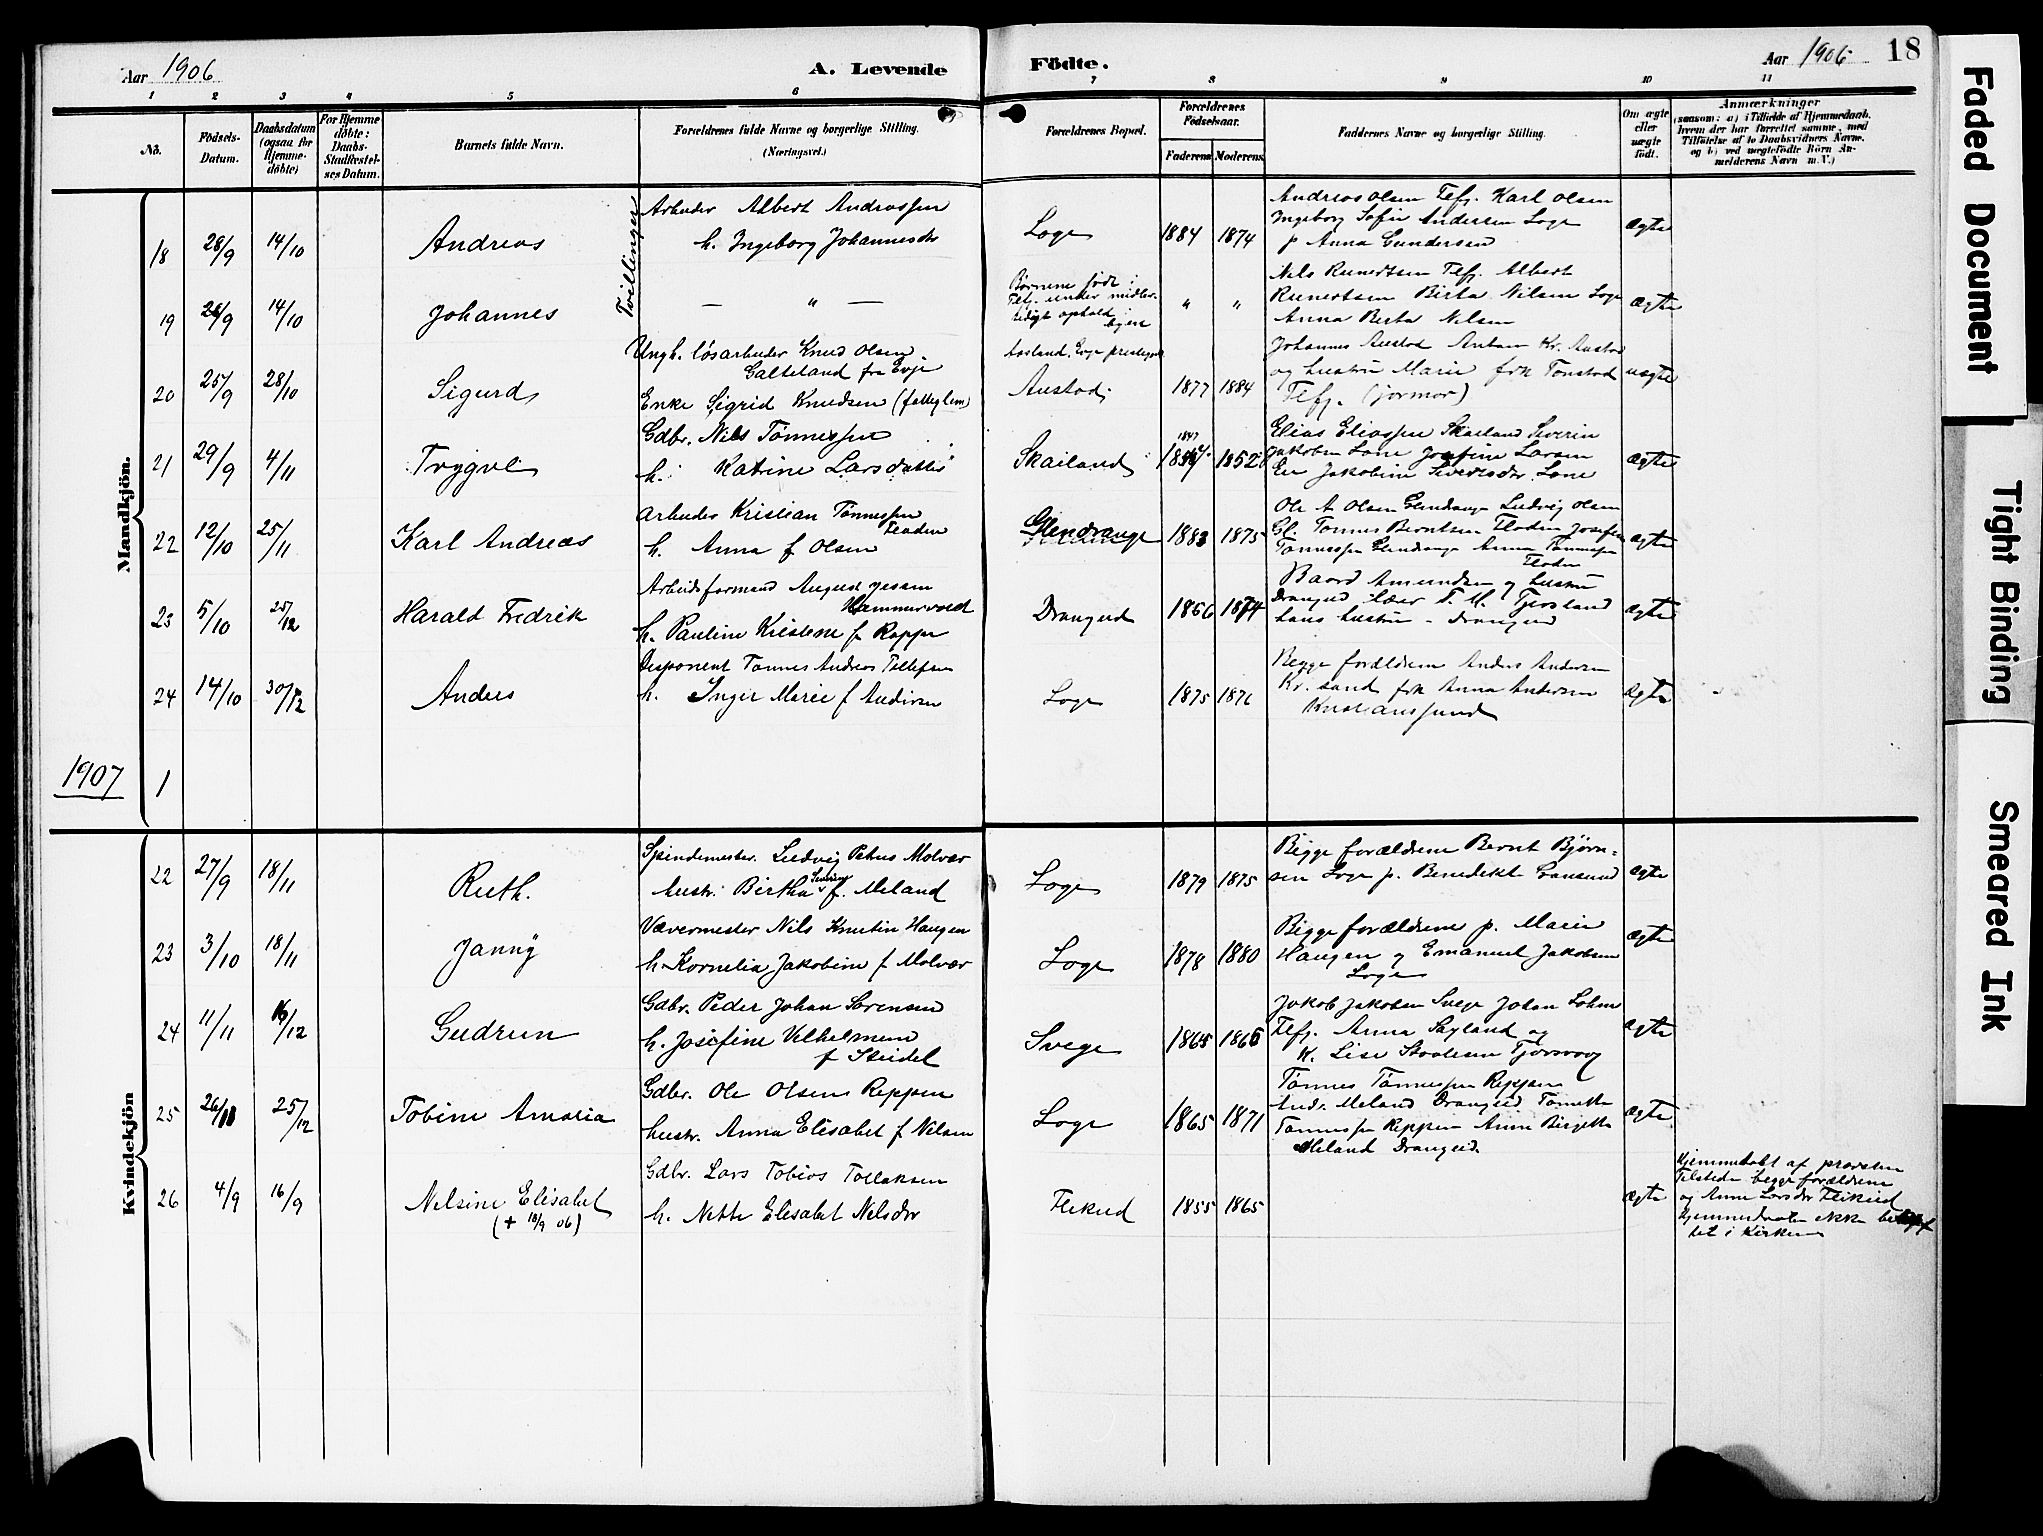 Aar 1906
A. Levende
Födte.
Aar 1906
18
1 2 3 4 5 6 7 8 9 10 11
No.
Födsels-Datum.
Daabsdatum (ogsaa for Hjemmedøbte)
For Hjemmedøbte: Daabs-Stadfæstelses Datum.
Barnets fulde Navn.
Forældrenes fulde Navne og borgerlige Stilling. (Næringsvei.)
Forældrenes Bopæl.
Forældrenes Födselsaar.
Faderens Moderens
Faddernes Navne og borgerlige Stilling.
Om ægte eller uægte födt.
Anmærkninger
(saasom: a) i Tilfælde af Hjemmedaab, hvem der har forrettet samme, med Tilföielse af to Daabsvidners Navne, og b) ved uægtefödte Börn Anmelderens Navn m. V.)
Mandkjön.
Tvillinger
18 28/9 14/10 Andreas
Arbeider Albert Andreassen
h. Ingeborg Johannesdr
Loge 1884 1874
Andreas Olsen Flefj. Karl Olsen
Ingeborg Sofie Andersen Loge
p Anna Gundersen
ægte
19 28/9 14/10 Johannes
— " —
Børnene født i
Flefj. under midler-
tidigt ophold i
byen
" "
Nils Runertsen Flefj. Albert
Runertsen Birta Nilsen Loge
Anna Berta Nilsen
ægte
20 25/9 28/10 Sigurd
Ungk. løsarbeider Knud Olsen
Galteland fra Evje
Enke Sigrid Knudsen (fattiglem)
Austad 1877 1884
Johannes Austad Anton Kr. Austad
og hustru Marie frk Tonstad
Flefj. (jormor)
uægte
21 29/9 4/11 Trygve
Gdbr. Nils Tønnessen
h. Katrine Larsdatter
Skailand 1847 1852
Elias Eliassen Skailand Severin
Jakobsen Lone Josefine Larsen
Ev Jakobine Seversdr. Lone
ægte
22 12/10 25/11 Karl Andreas
Arbeider Kristian Tønnessen
Floden
h. Anna f Olsen
Glendrange 1883 1875
Ole A Olsen Glendrange Ludvig Olsen
Gl. Tønnes Berntsen Floden Josefine
Tønnessen Glendrange Anna Tønnessen
Floden
ægte
23 5/10 25/12 Harald Fredrik
Arbeidsformand August
Hammervold
h. Pauline Kristine f Roppe
Drangeid 1866 1874
Baard Amundsen og hustru
Drangeid Lærer T. M. Tjorsland
hans hustru - Drangeid
ægte
24 14/10 30/12 Anders
Disponent Tønnes Andreas Tollefsen
h. Inger Marie f Andersen
Loge 1875 1876
Begge forældrene Anders Andersen
Kr.sand frk Anna Andersen
Kristianssund
ægte
1907 1
Kvindekjön
22 27/9 18/11 Ruth.
Spindemester. Ludvig Petrus Molvær
hustr. Birtha Severine f. Meland
Loge 1879 1875
Begge forældrene Bernt Bjørn=
sen Loge p. Benedikte Gransund
ægte
23 3/10 18/11 Janny
Vævermester Nils Knutin Haugen
h. Kornelia Jakobine f Molvær
Loge 1878 1880
Begge forældrene p. Marie
Haugen og Emanuel Jakobsen
Loge
ægte
24 11/11 16/12 Gudrun
Gdbr. Peder Johan Sørensen
h. Josefine Vilhelmine
f Steidel
Svege 1865 1866
Jakob Jakobsen Svege Johan Lohne
Flefj. Anna Søyland og
K. Lise Skoolesen Tjørsvaag
ægte
25 26/11 25/12 Tobine Amalia
Gdbr. Ole Olsen Reppen
hustr. Anna Elisabet f Nilsen
Loge 1865 1871
Tønnes Tønnessen Reppen
Andr. Meland Drangeid Tomette
Tønnessen Reppen Anne Birgitte
Meland Drangeid.
ægte
26 4/9 16/9 Nelsine Elisabet
(+ 18/9 06)
Gdbr. Lars Tobias Tollaksen
h. Nette Elisabet Nelsdr
Flikeid 1855 1865
ægte
Hjemmedøbt af provsten
Tilstede begge forældrene
og Anne Larsdr Flikeid
Hjemmedaaben ikke bekræf
tet i Kirken
Faded Document
Tight Binding
Smeared Ink